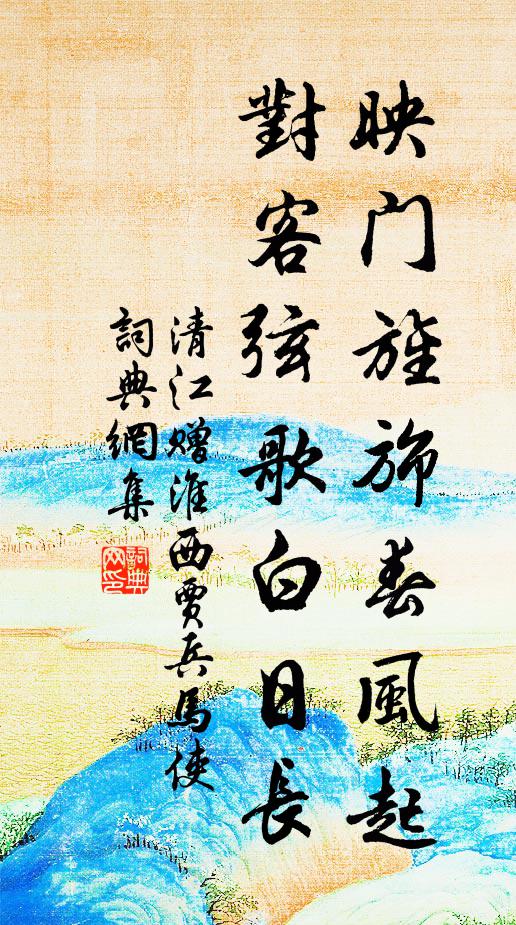 映门旌旆春風起
對客弦歌白日長
清江赠淮西賈兵馬使
詞典網集
詞典網印